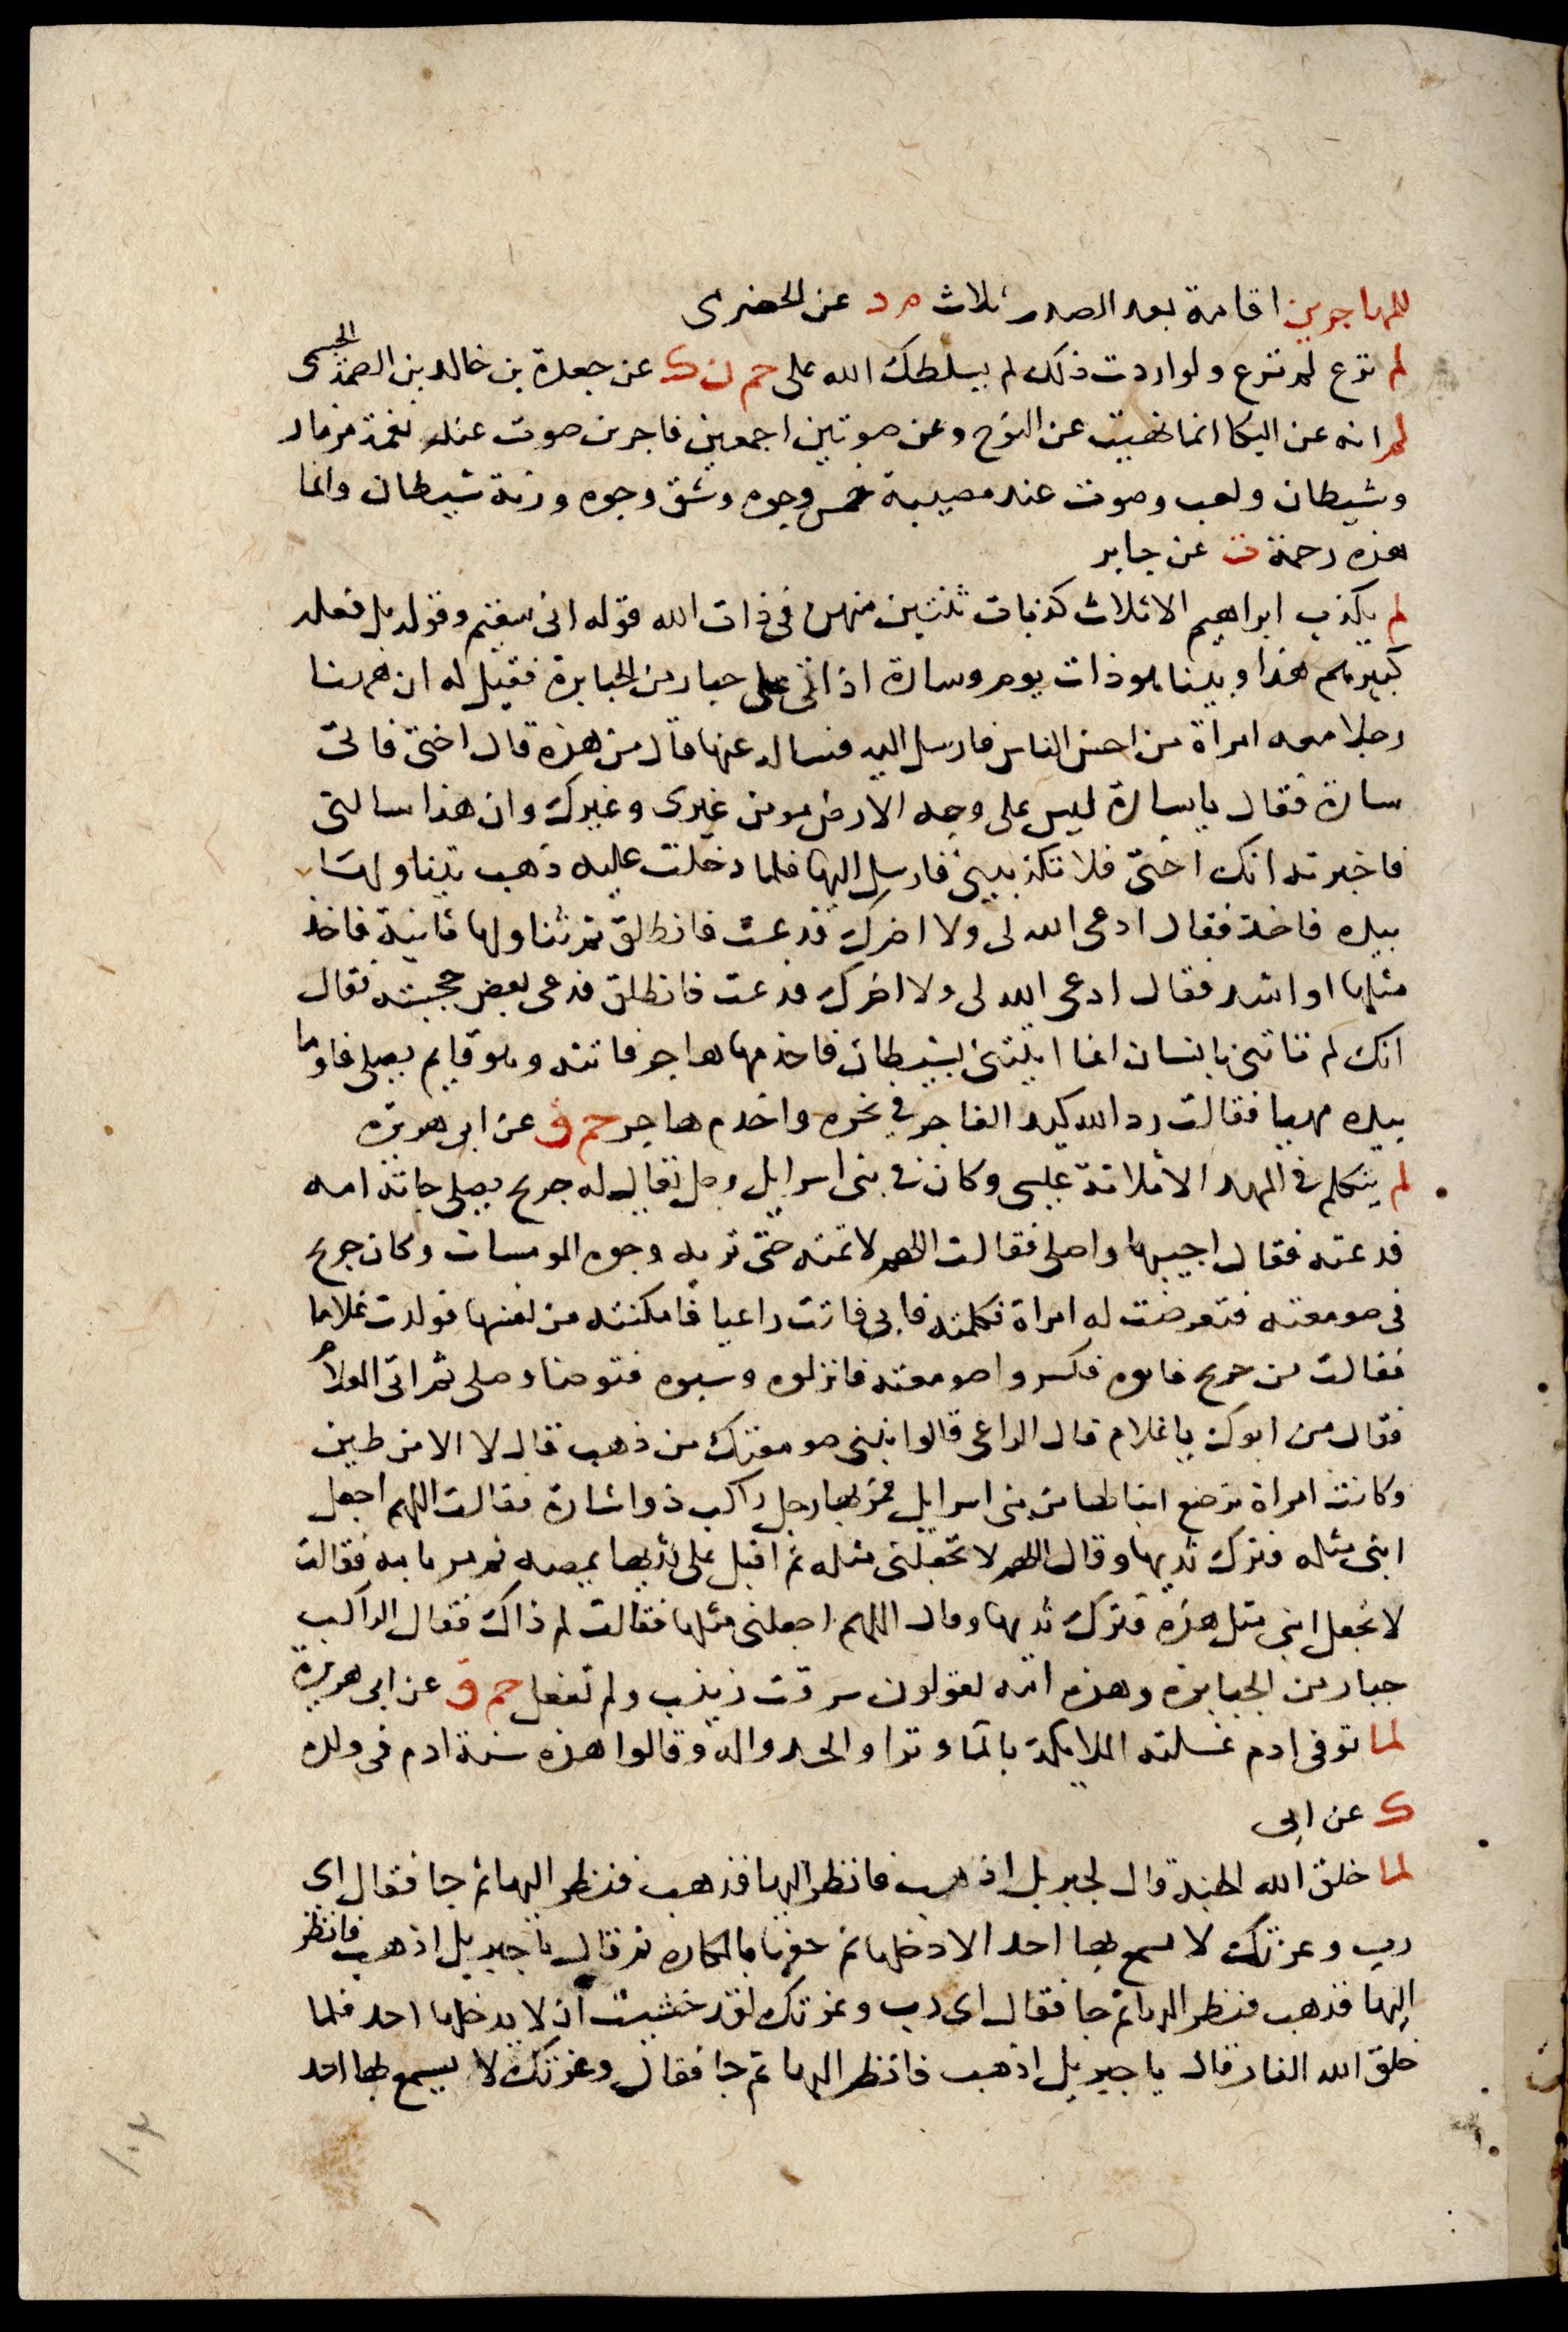 للمهاجرين اقامة بعد الصدر ثلاث م د عن الحضرى
لم ترع لم ترع ولو اردت ذلك لم يسلطك الله على حم ن ك عن جعدة بن خالد بن الصمة الجشمى
لم انه عن البكا انما نهيت عن النوح وعن صوتين احمقين فاجرين صوت عند نغمة مزمار
وشيطان ولعب وصوت عند مصيبة خمش وجوه وشق وجوه ورنة شيطان وانما
هذه رحمة ت عن جابر
لم يكذب ابراهيم الا ثلاث كذبات ثنتين منهن فى ذات الله قوله انى سقيم وقوله بل فعله
كبيرهم هذا وبينا هو ذات يوم وسارة اذ اتى على جبار من الجبابرة فقيل له ان ههنا
رجلا معه امراة من احسن الناس فارسل اليه فساله عنها قال من هذه قال اختى فاتى
سارة فقال يا سارة ليس على وجه الارض مومن غيرى وغيرك وان هذا سالنى
فاخبرته انك اختى فلا تكذبينى فارسل اليها فلما دخلت عليه ذهب يتناولها
بيده فاخذ فقال ادعى الله لى ولا اضرك فدعت فانطلق ثم تناولها ثانية فاخذ
مثلها او اشد فقال ادعى الله لى ولا اضرك فدعت فانطلق فدعى بعض حجبته فقال
انك لم تاتنى بانسان انما اتيتنى بشيطان فاخدمها هاجر فاتته وهو قايم يصلى فاوما
بيده مهيا فقالت رد الله كيد الفاجر فى نحره واخدم هاجر حم ق عن ابى هريرة
لم يتكلم فى المهد الا ثلاثة عيسى وكان فى بنى اسرايل رجل يقال له جريج يصلى جاته امه
فدعته فقال اجيبها او اصلى فقالت اللهم لا تمته حتى تريه وجوه المومسات وكان جريج
فى صومعته فتعرضت له امراة فكلمته فابى فاتت راعيا فامكنته من نفسها فولدت غلاما
فقالت من جريج فاتوه فكسروا صومعته فانزلوه وسبوه فتوضا وصلى ثم اتى الغلام
فقال من ابوك يا غلام قال الراعى قالوا نبنى صومعتك من ذهب قال لا الا من طين
وكانت امراة ترضع ابنا لها من بنى اسرايل فمر بها رجل راكب ذو اشارة فقالت اللهم اجعل
ابنى مثله فترك ثديها وقال اللهم لا تجعلنى مثله ثم اقبل على ثديها يمصه ثم مر بامة فقالت
لا تجعل ابنى مثل هذه فترك ثديها وقال اللهم اجعلنى مثلها فقالت لم ذاك فقال الراكب
جبار من الجبابرة وهذه امة يقولون سرقت زنيت ولم تفعل حم ق عن ابى هريرة
لما توفى ادم غسلته الملايكة بالما وترا والحدوا له وقالوا هذه سنة ادم فى ولده
ك عن ابى
لما خلق الله الجنة قال لجبريل اذهب فانظر اليها فذهب فنظر اليها ثم جا فقال اى
رب وعزتك لا يسمع بها احد الا دخلها ثم حفها بالمكاره ثم قال يا جبريل اذهب فانظر
اليها فذهب فنظر اليها ثم جا فقال اى رب وعزتك لقد خشيت ان لا يدخلها احد فلما
خلق الله النار قال يا جبريل اذهب فانظر اليها ثم جا فقال وعزتك لا يسمع بها احد